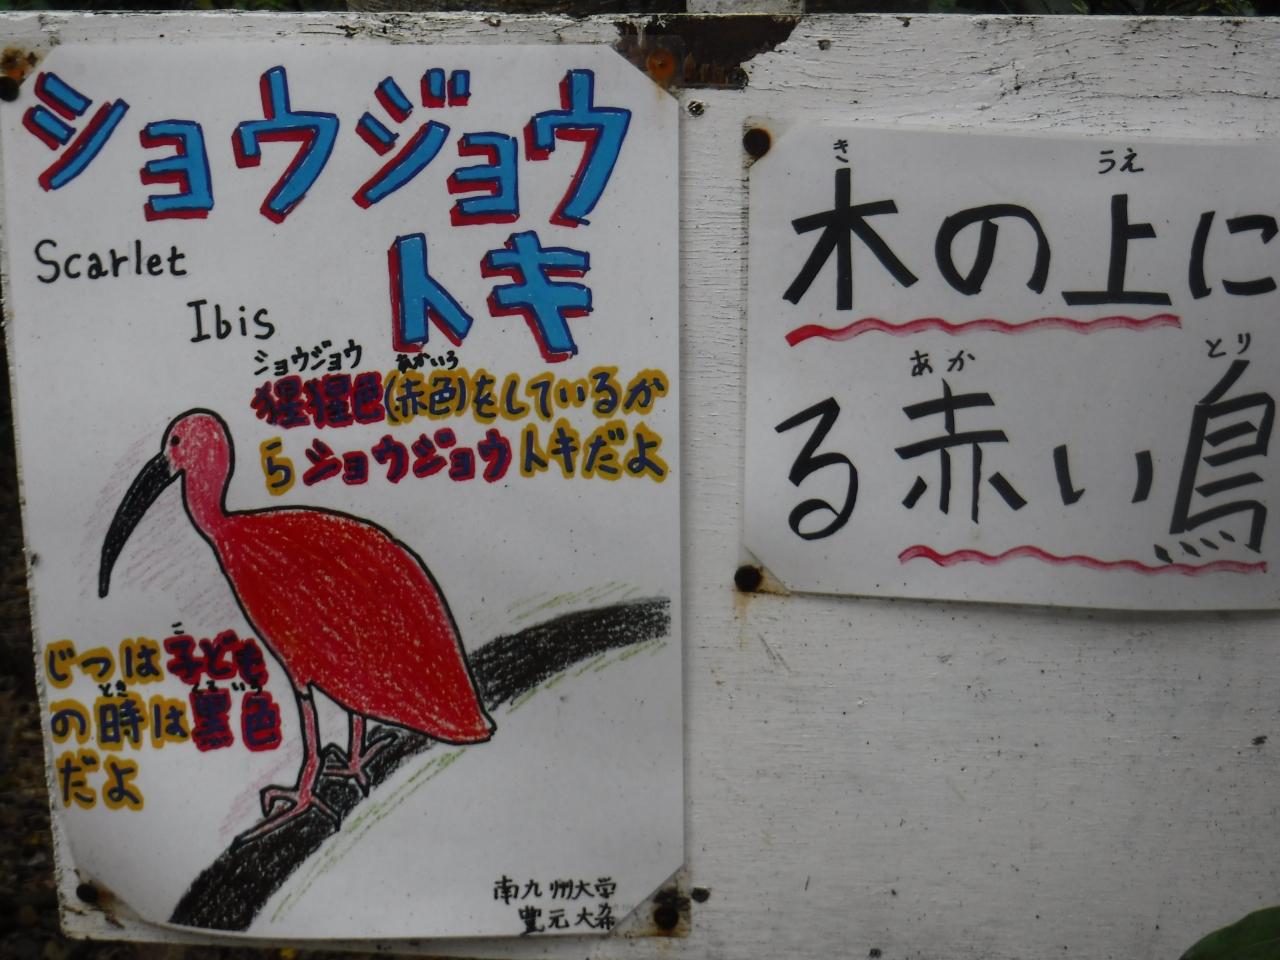 ショウジョウ
トキ
Scarlet
Ibis
ショウジョウ あかいろ
猩猩色(赤色)をしているか
らショウジョウトキだよ
こ
じつは子ども
とき くろいろ
の時は黒色
だよ
南九州大学
豊元大希
き うえ
木の上に
あか とり
る赤い鳥